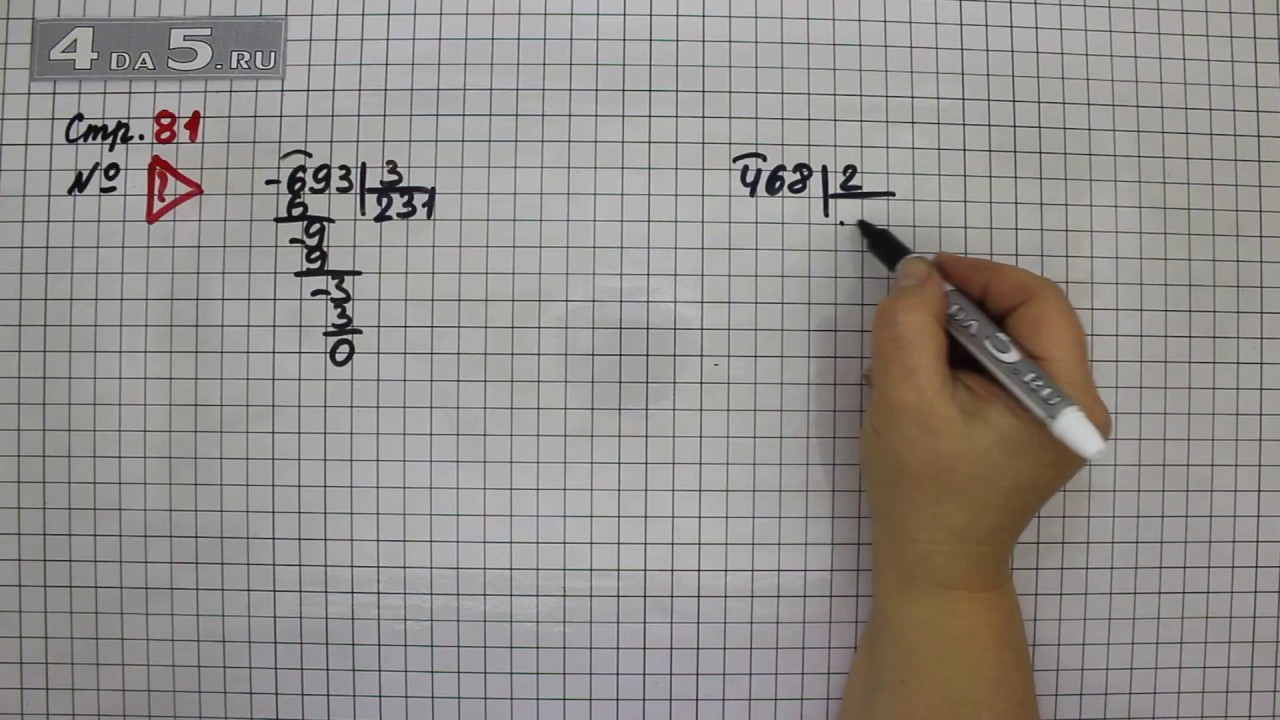 4 DA 5.RU
Стр. 81
№ ?
-693 | 3
6 231
-9
9
-3
3
0
468 | 2